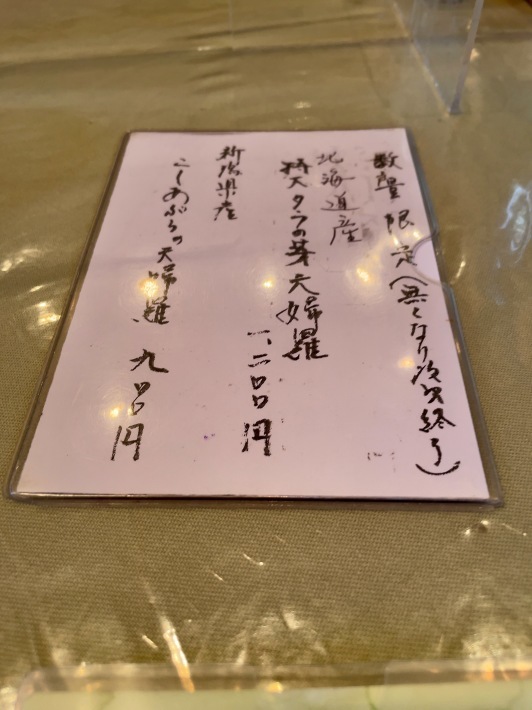 数量限定(無くなり次第終了)
北海道産
特大タラの芽天婦羅
一、二〇〇円
新潟県産
こしあぶらの天婦羅 九〇〇円